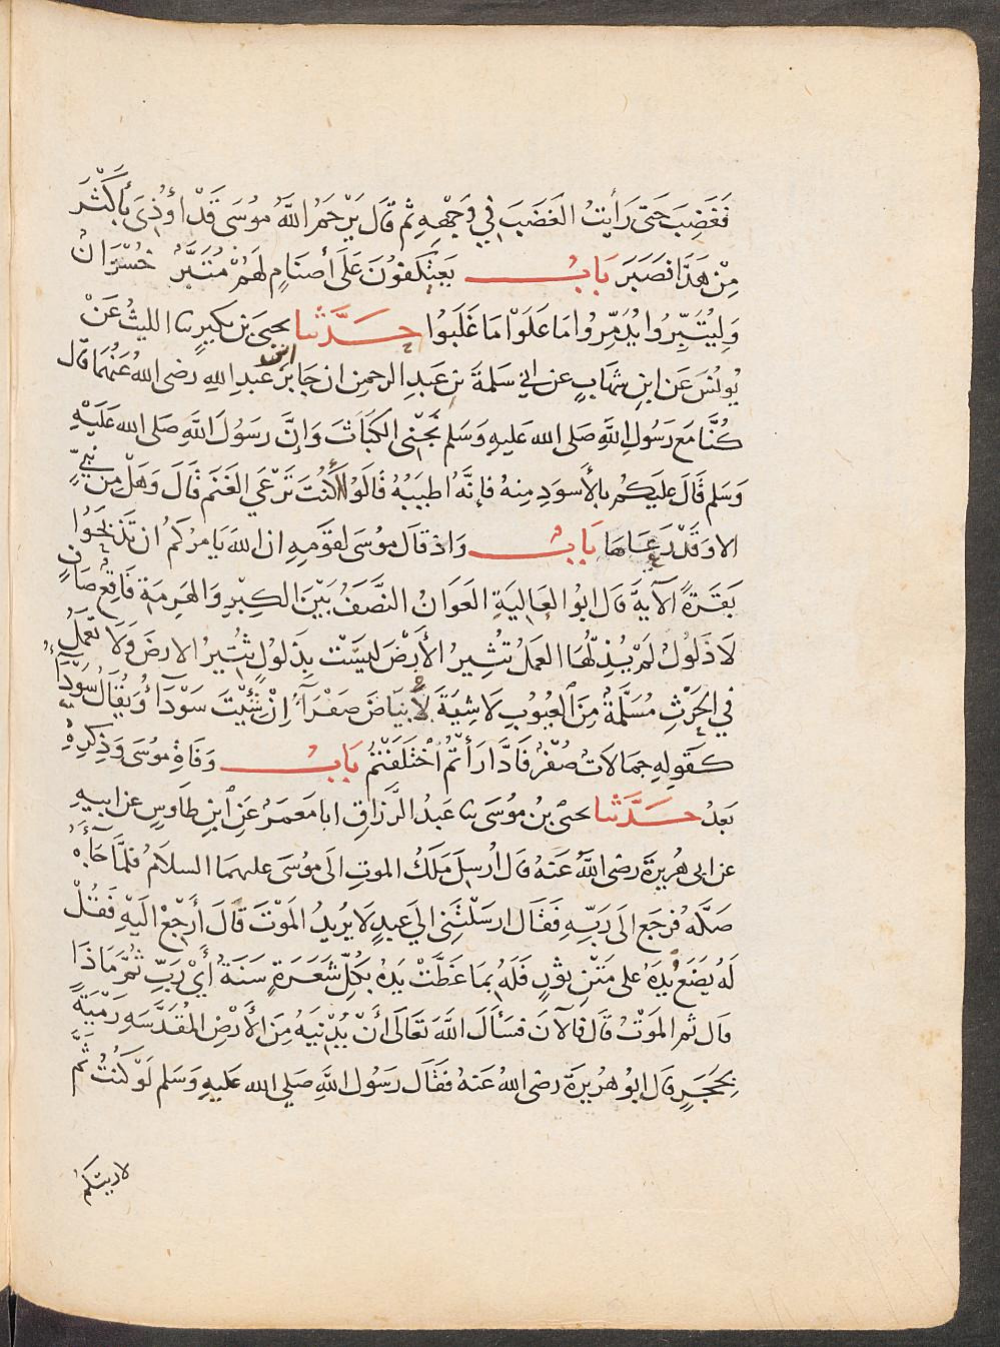 فَغَضِبَ حَتى رَأيتُ الغَضَبَ فِي وَجْهِهِ ثم قال يَرْحَمُ اللَّهُ موُسَى قَدْ اُوْذِىَ بأَكْثَرَ
مِنْ هَذَا فَصَبَرَ بَابُ يَعْتِكفوُنَ عَلَى أصنَامٍ لهَمُ مُتَبَّرٌ خُسْرَانٌ
وَلِيُتَبِّرُوا يُدَمِّرُوا مَا عَلَوْا مَا غَلَبوُا حَدَّثنا يحيىَ بن بكيرٍ نا الليثُ عَنْ
يوُنُسَ عَن ابنِ شِهَابٍ عن ابي سَلمةَ بن عَبدِ الرحمن ان جَابرَ ابن عَبدِ اللهِ رضى الله عَنُهمَا قال
كُنَّا مَع رَسُولِ اللَّهِ صَلى الله عَليهِ وَسَلم نَجْنِى الكَبَاثَ وَإنَّ رسَوُلَ اللَّهِ صَلى الله عَلَيْهِ
وَسَلم قَالَ عليَكم بالأَسوَدِ مِنهُ فإنَّهُ اطيَبُهُ قالَوُا أَكنُتَ تَرْعَي الغَنَم قَالَ وَهَلْ مِن نَبيٍّ
الا وَقَدْ رَعَاهَا بَابُ وَاذ قَالَ موُسَى لقَومِهِ ان اللهَ يَامُركُمُ ان تَذبَحُوا
بَقَرَةً الآيةَ قَال ابوُا العَاليَةِ العَوَانُ النَّصَفُ بَيْنَ الكِبرِ وَالهَرِمَةِ فَاقِعٌ صَافٍ
لَا ذَلوُلٌ لمَ يُذِلّهَا العَملُ تُثِيرُ الأَرْضَ ليَسَتْ بِذَلوُلٍ تُثِيرُ الارضَ وَلَا تَعمَلُ
في الحَرْثِ مُسَلَّمةٌ مِنَ العيُوُبِ لَا شِيَةَ لَا بيَاضَ صَفْرَآءُ اِنْ شِئْتَ سَوْدَآءُ وَيُقَالُ سَوْدَآءُ
كقَولِهِ جمَالاَتٌ صُفْرٌ فَادَّارَأتُمْ اُختَلَفَتُمْ بَابُ وَفَاةِ موُسَى وَذِكرِهِ
بَعدُ حَدَّثنا يحيىَ بنُ موُسَى نا عَبدُ الرَّزاقِ انا مَعمَرٌ عَنِ ابنِ طاوسٍ عن ابيهِ
عن ابى هُريرَةَ رضى اللَّهُ عَنهُ قَال اُرسِلَ مَلَكُ الموتِ الَى موُسَى عليهمَا السلاَمُ فلمَّا جَآءَهُ
صَكَّهُ فرجَع الَى رَبِّهِ فَقَال ارسَلْتَنِى الَي عبدٍ لَا يرُيدُ المَوْتَ قَالَ أرْجِعْ الَيْهِ فَقُلْ
لَهُ يَضَعُ يدَهُ على مَتْنِ ثوْرٍ فَلَهُ بمَا غَطَّتْ يَدُهُ بكُلِّ شَعَرَةٍ سَنَةٌ أَيْ رَبِّ ثُمَّ مَاذَا
قال ثمَ الموَتُ قَالَ فالآنَ فسَأَلَ اللَّهَ تعَالَى أنْ يُدْنِيَهُ مِنَ الأَرْضِ المُقَدَّسَةِ رَمْيَةً
بحَجَرٍ قَال ابوُ هرُيرَةَ رضى اللهُ عَنهُ فَقَال رسَوُل اللَّهِ صَلي الله عَليهِ وَسَلم لَوْ كنُتُ ثَمَّ
لاريتكم